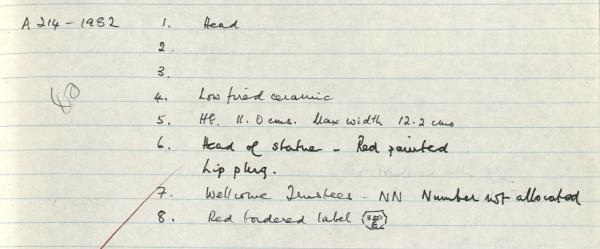 A 214 - 1982 1. Head
2.
3.
4. Low fired ceramic
5. Ht. 11.0 cms. Max width 12.2 cms
6. Head of statue - Red painted
Lip plug.
7. Wellcome Trustees - NN Number not allocated
8. Red bordered label